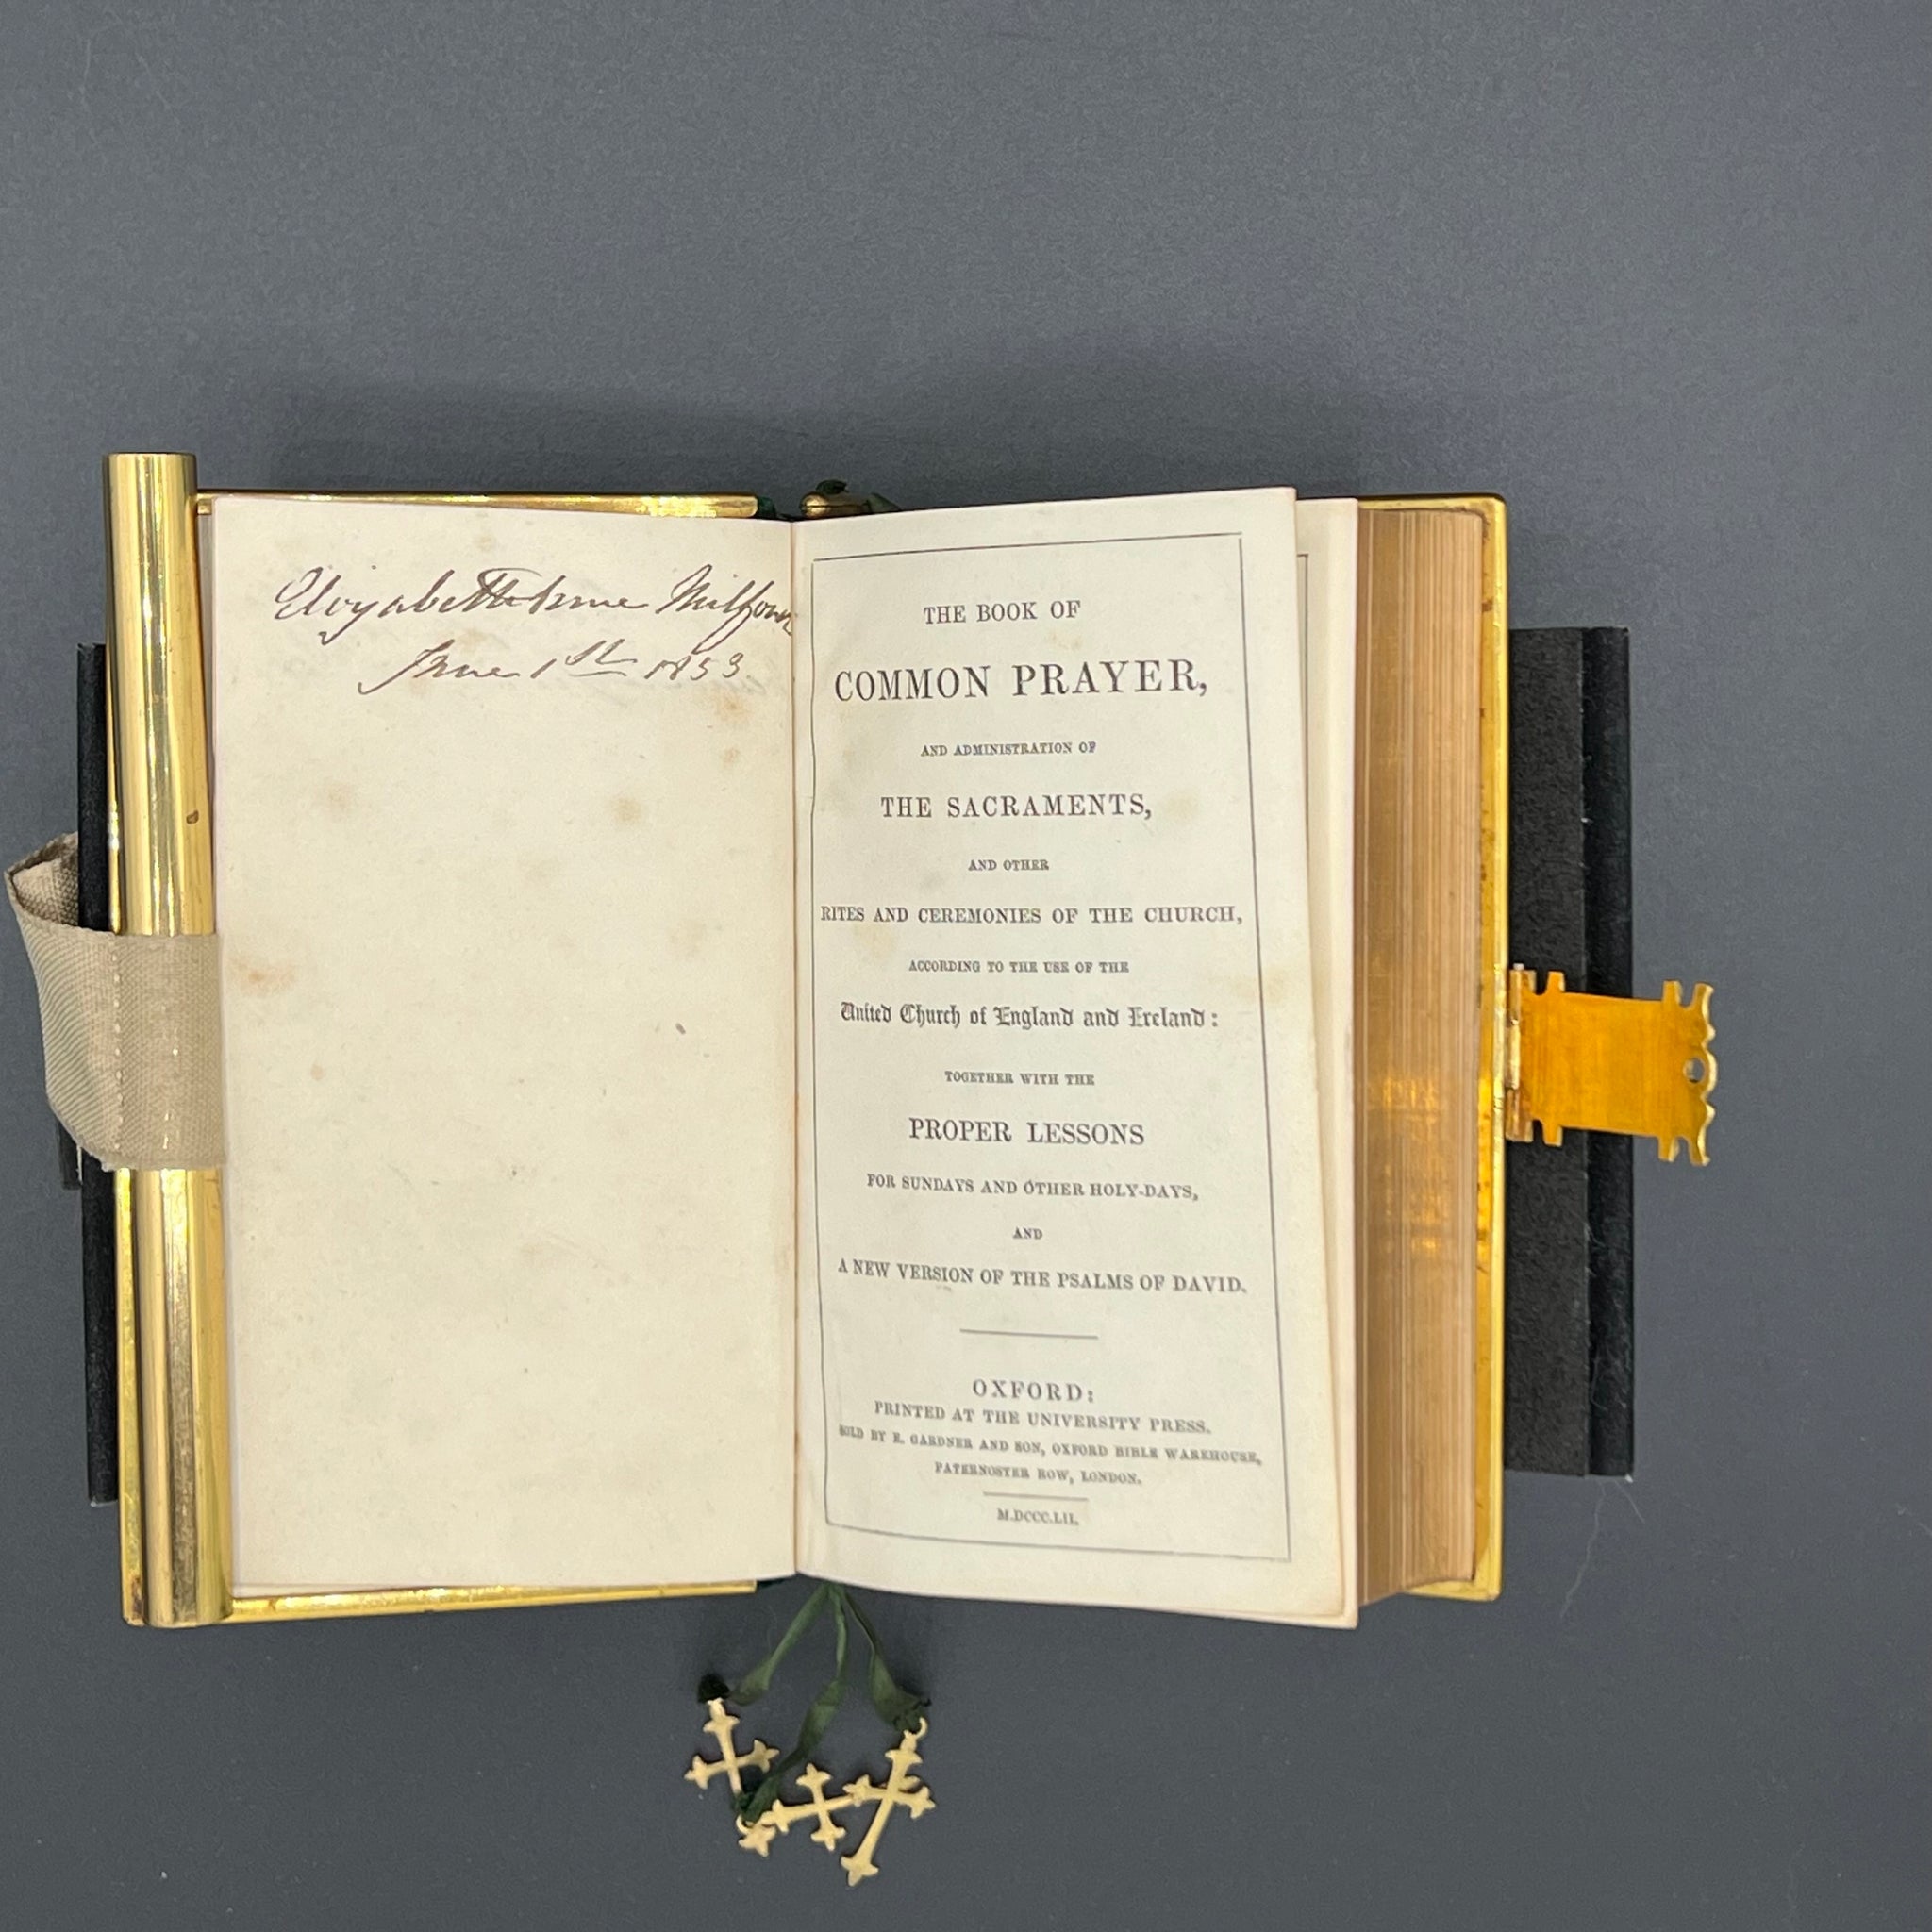 Elizabeth Anne Milford
June 1st 1853
THE BOOK OF
COMMON PRAYER,
AND ADMINISTRATION OF
THE SACRAMENTS,
AND OTHER
RITES AND CEREMONIES OF THE CHURCH,
ACCORDING TO THE USE OF THE
United Church of England and Ireland:
TOGETHER WITH THE
PROPER LESSONS
FOR SUNDAYS AND OTHER HOLY-DAYS,
AND
A NEW VERSION OF THE PSALMS OF DAVID.
OXFORD:
PRINTED AT THE UNIVERSITY PRESS.
SOLD BY E. GARDNER AND SON, OXFORD BIBLE WAREHOUSE,
PATERNOSTER ROW, LONDON.
M.DCCC.LII.